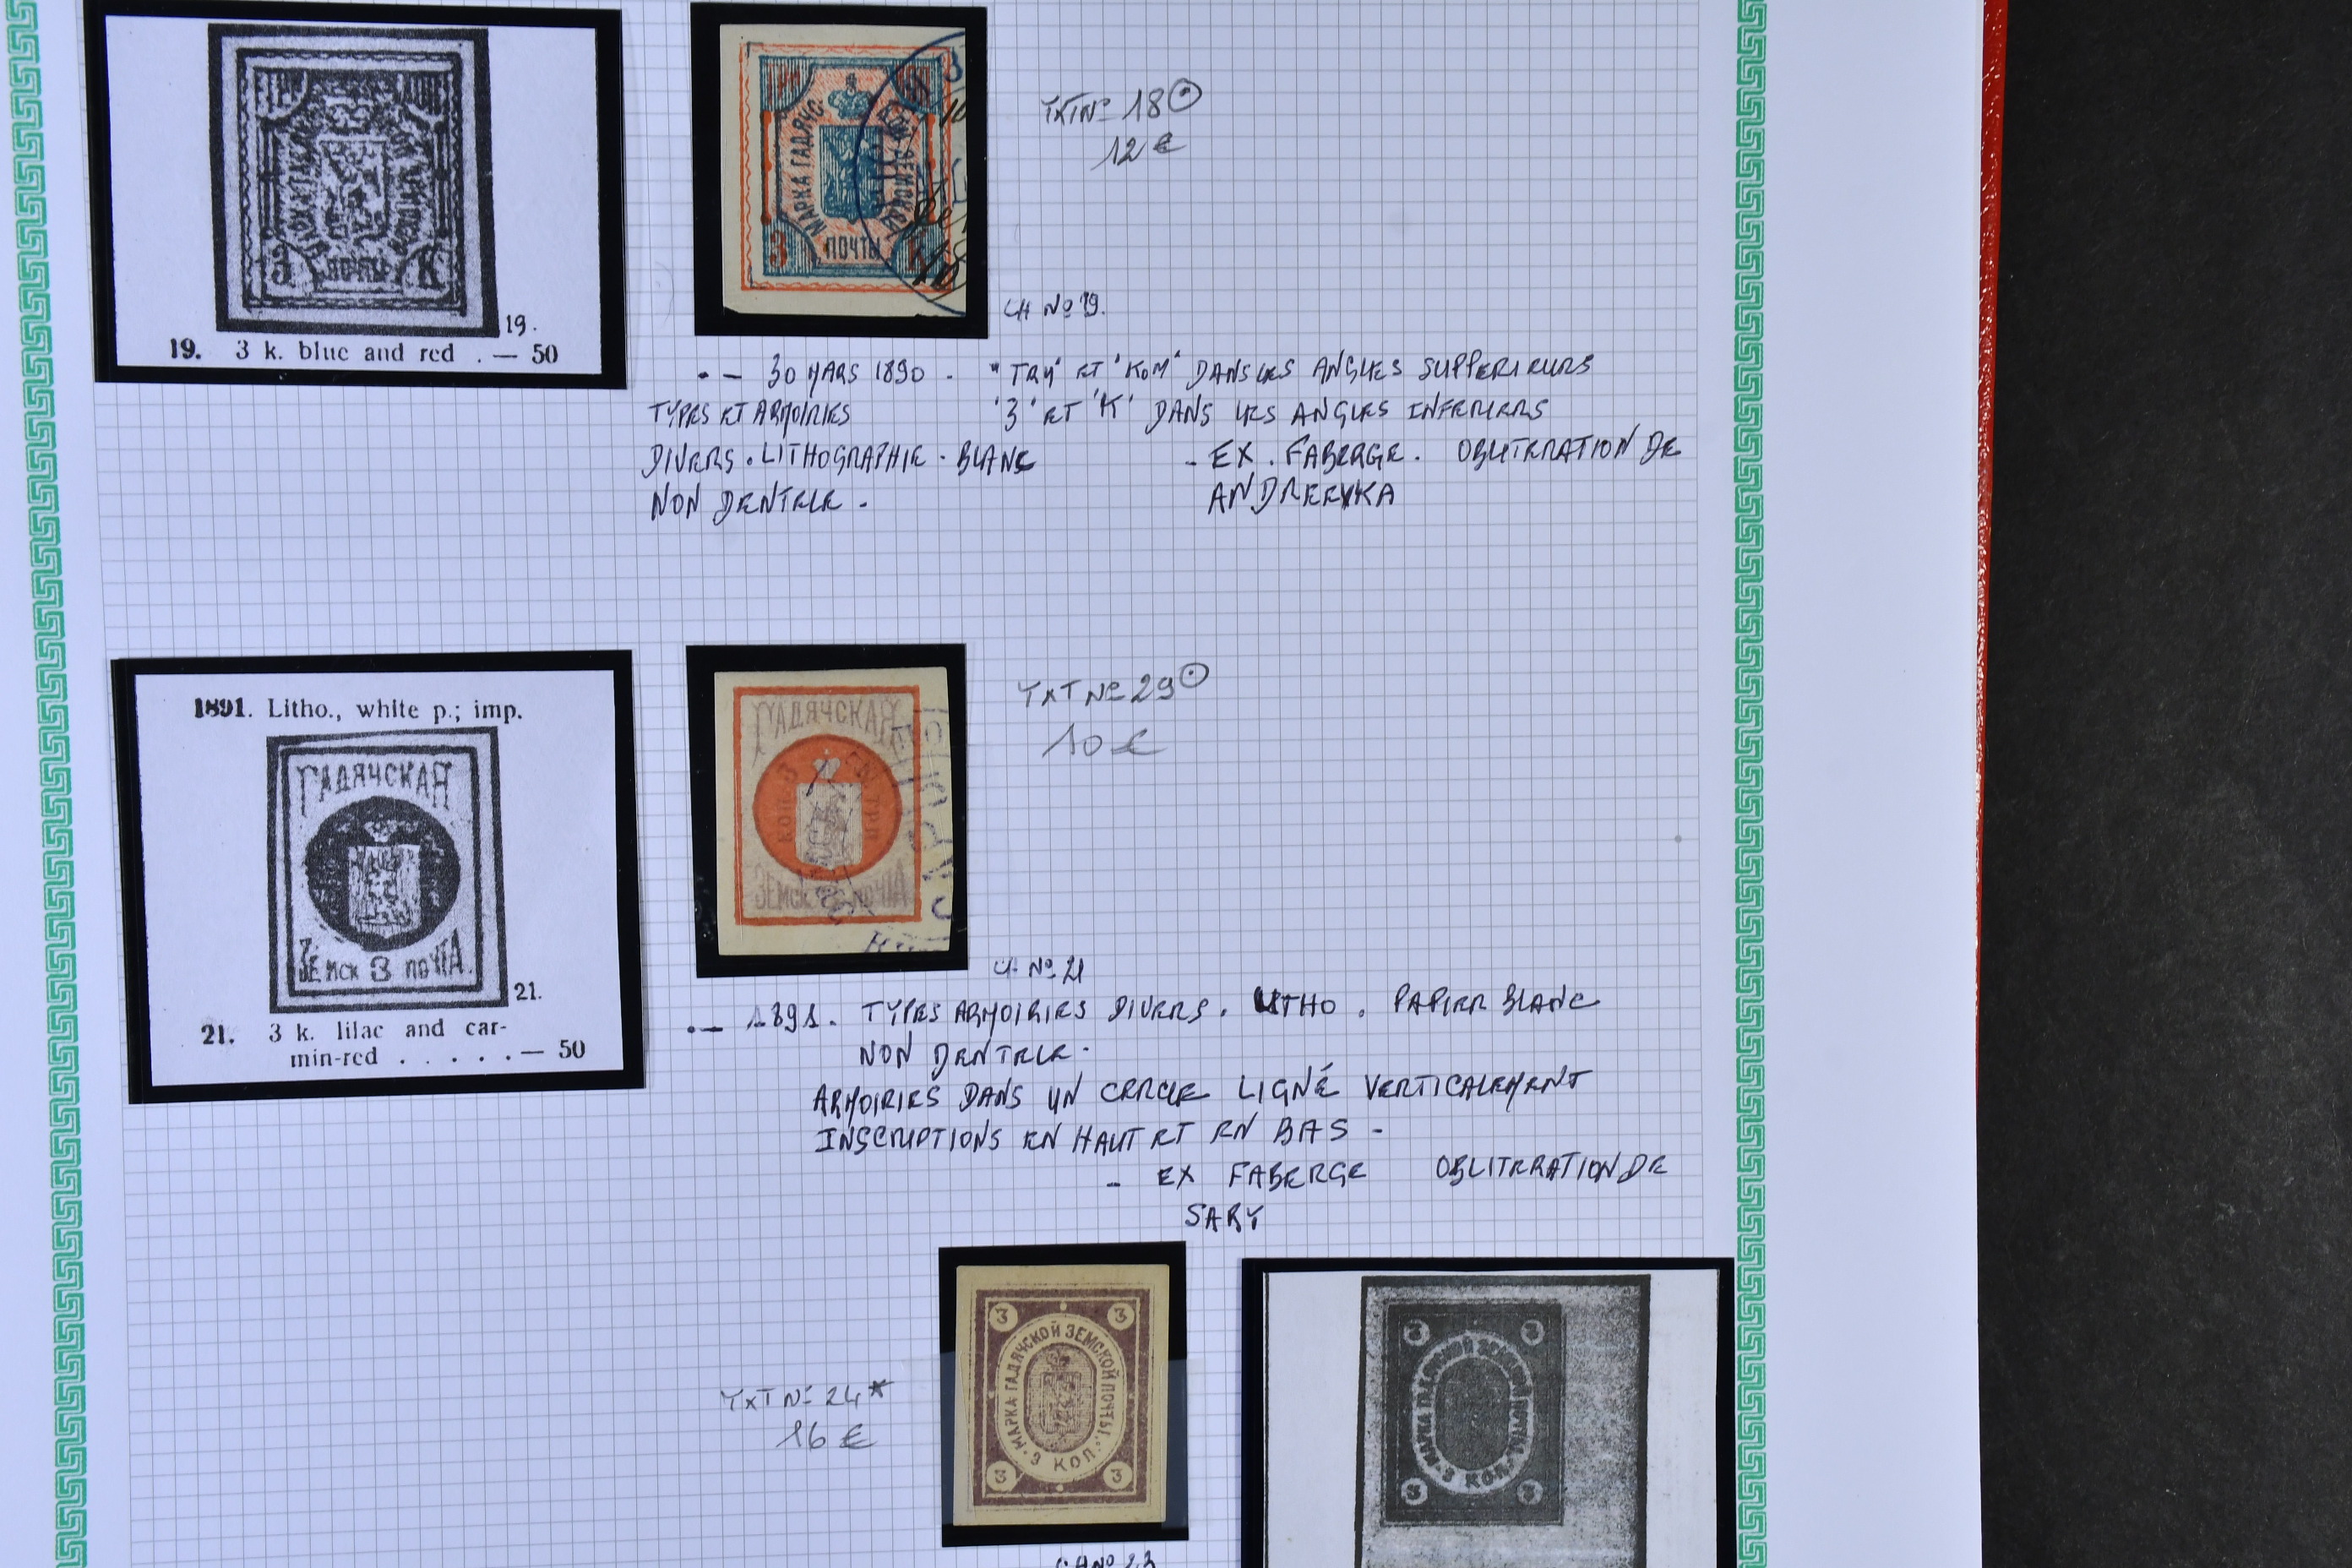 19.
19. 3 k. blue and red . — 50
МАРКА ГАДЯЧС
ПОЧТЫ
3
YXT N° 18
12 €
CH N° 19.
•— 30 MARS 1890 - "TRY" ET "KOM" DANS LES ANGLES SUPPERIEURS
TYPES ET ARMOIRIES '3' ET 'K' DANS LES ANGLES INFERIERS
DIVERS . LITHOGRAPHIE . BLANC - EX . FABERGE . OBLITERATION DE
NON DENTELE . ANDREEVKA
1891. Litho., white p.; imp.
ГАДЯЧСКАЯ
ЗЕМСК 3 ПОЧТА.
21.
21. 3 k. lilac and car-
min-red . . . . . — 50
ГАДЯЧСКАЯ
КОП. 3
ТРИ
ЗЕМСК ПОЧТА
YXT N° 29
10 €
CH N° 21
•— 1891. TYPES ARMOIRIES DIVERS . LITHO . PAPIER BLANC
NON DENTELE .
ARMOIRIES DANS UN CERCLE LIGNÉ VERTICALEMENT
INSCRIPTIONS EN HAUT ET EN BAS -
- EX FABERGE OBLITERATION DE
SARY
YXT N° 24*
16 €
3 3
МАРКА ГАДЯЧСКОЙ ЗЕМСКОЙ ПОЧТЫ.
3 КОП.
3 3
3 3
3 КОП.
3 3
CH N° 23